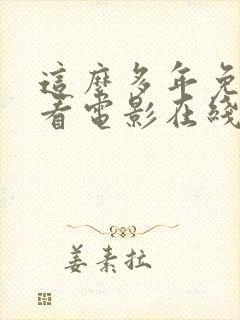 這麼多年免
看電影在綫
姜素拉